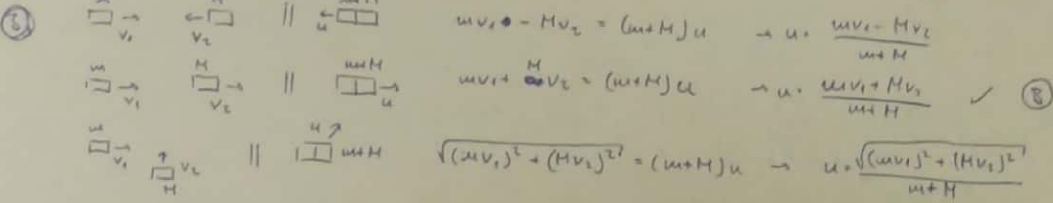 ③ m → v₁ ← v₂ M || ← u m+M mv₁ - Mv₂ = (m+M)u → u = (mv₁ - Mv₂)/(m+M)
m → v₁ M → v₂ || m+M → u mv₁ + Mv₂ = (m+M)u → u = (mv₁ + Mv₂)/(m+M) ✓ Ⓑ
m → v₁ ↑ v₂ M || u ↗ m+M √((mv₁)² + (Mv₂)²) = (m+M)u → u = √((mv₁)² + (Mv₂)²)/(m+M)